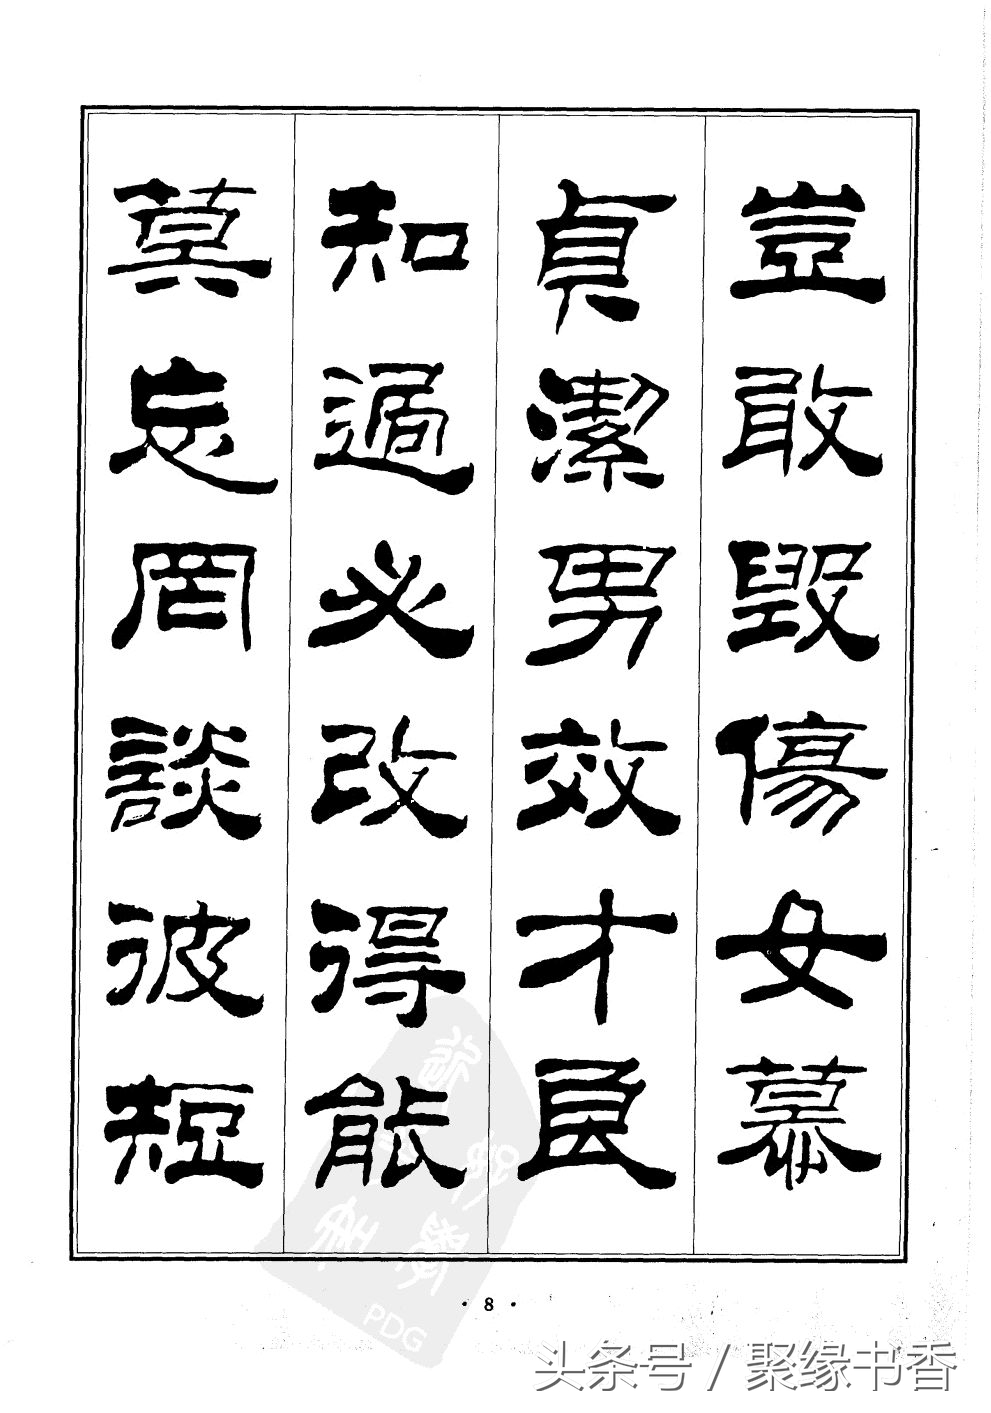 豈敢毀傷女慕
貞潔男效才良
知過必改得能
莫忘罔談彼短
· 8 ·
PDG
头条号 / 聚缘书香